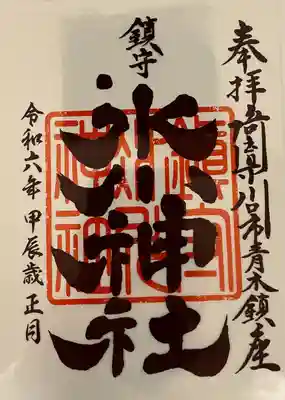 奉拝 川口市青木鎮座
鎮守
氷川神社
鎮守
氷川
神社
令和六年 甲辰歳 正月